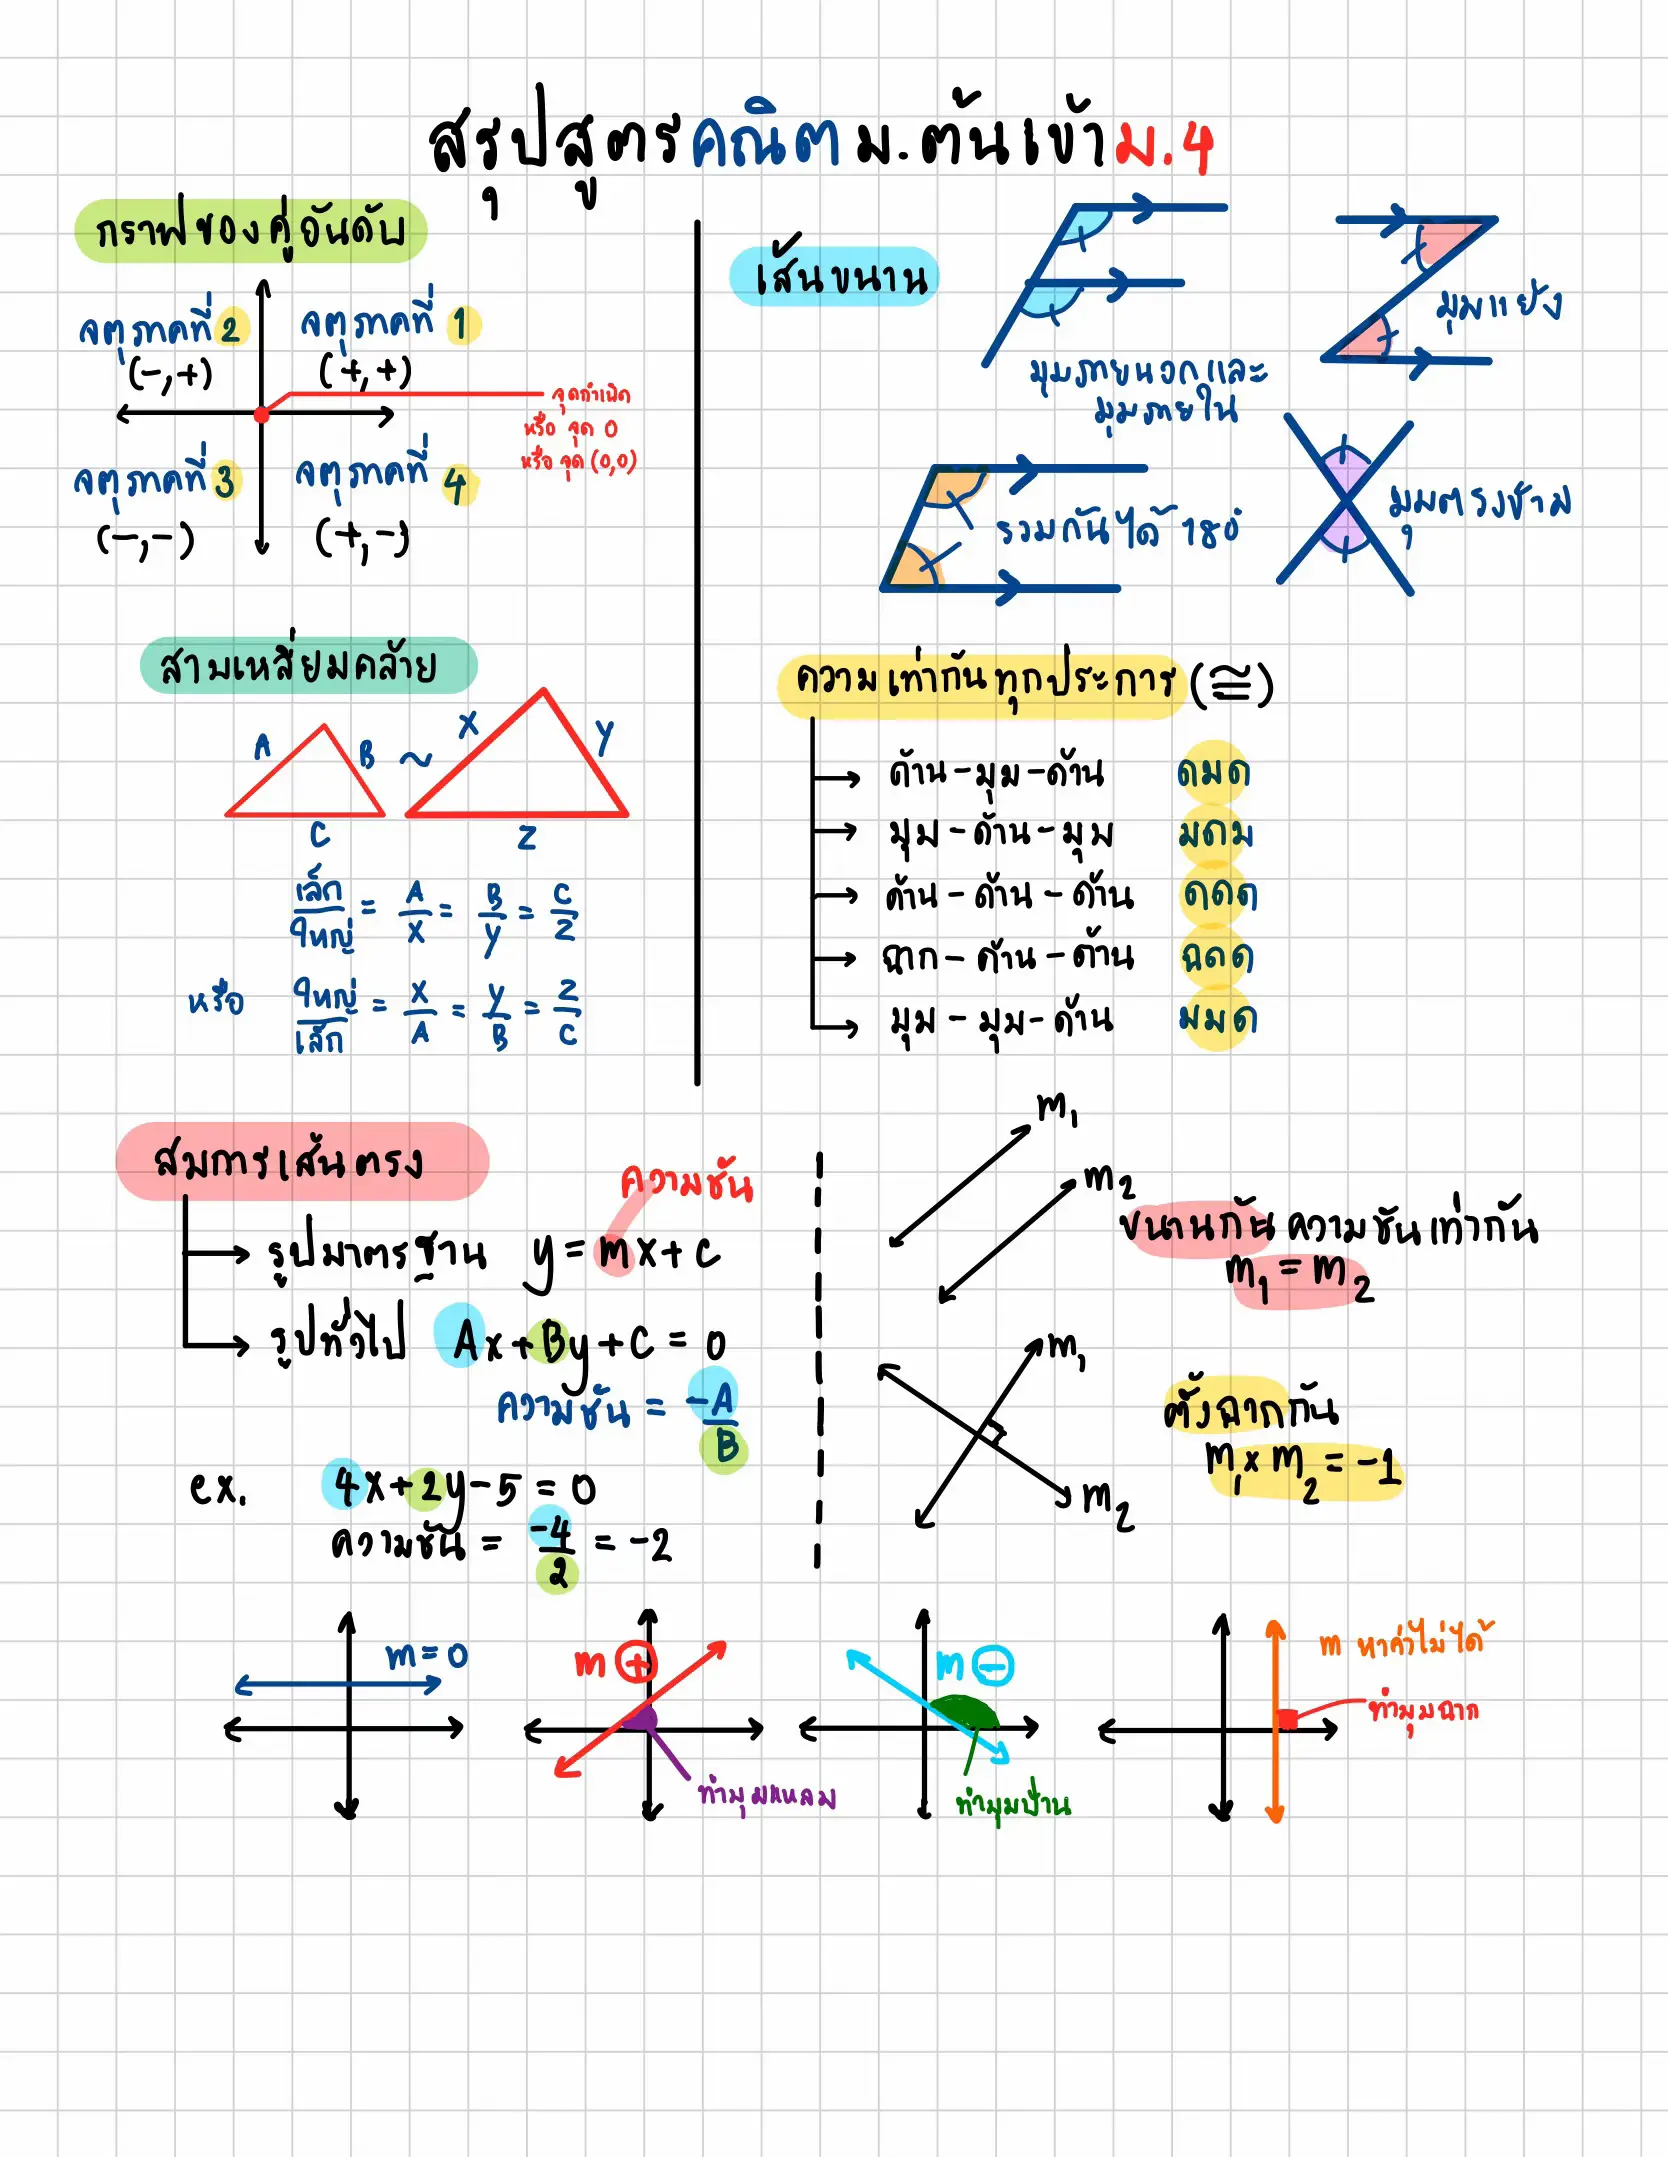 สรุปสูตรคณิตม.ต้นเข้าม.4
กราฟของคู่อันดับ
จตุภาคที่ 2
(-,+)
จตุภาคที่ 1
(+,+)
จุดกำเนิด
หรือ จุด 0
หรือ จุด (0,0)
จตุภาคที่ 3
(-,-)
จตุภาคที่ 4
(+,-)
เส้นขนาน
มุมภายนอกและ
มุมภายใน
มุมแย้ง
รวมกันได้ 180°
มุมตรงข้าม
สามเหลี่ยมคล้าย
A B C ~ X Y Z
เล็ก/ใหญ่ = A/X = B/Y = C/Z
หรือ ใหญ่/เล็ก = X/A = Y/B = Z/C
ความเท่ากันทุกประการ (≅)
ด้าน-มุม-ด้าน ดมด
มุม-ด้าน-มุม มดม
ด้าน-ด้าน-ด้าน ดดด
ฉาก-ด้าน-ด้าน ฉดด
มุม-มุม-ด้าน มมด
สมการเส้นตรง
ความชัน
รูปมาตรฐาน y = mx + c
รูปทั่วไป Ax + By + C = 0
ความชัน = -A/B
ex. 4x + 2y - 5 = 0
ความชัน = -4/2 = -2
m₁
m₂
ขนานกัน ความชันเท่ากัน
m₁ = m₂
m₁
m₂
ตั้งฉากกัน
m₁ x m₂ = -1
m = 0
m +
ทำมุมแหลม
m -
ทำมุมป้าน
m หาค่าไม่ได้
ทำมุมฉาก